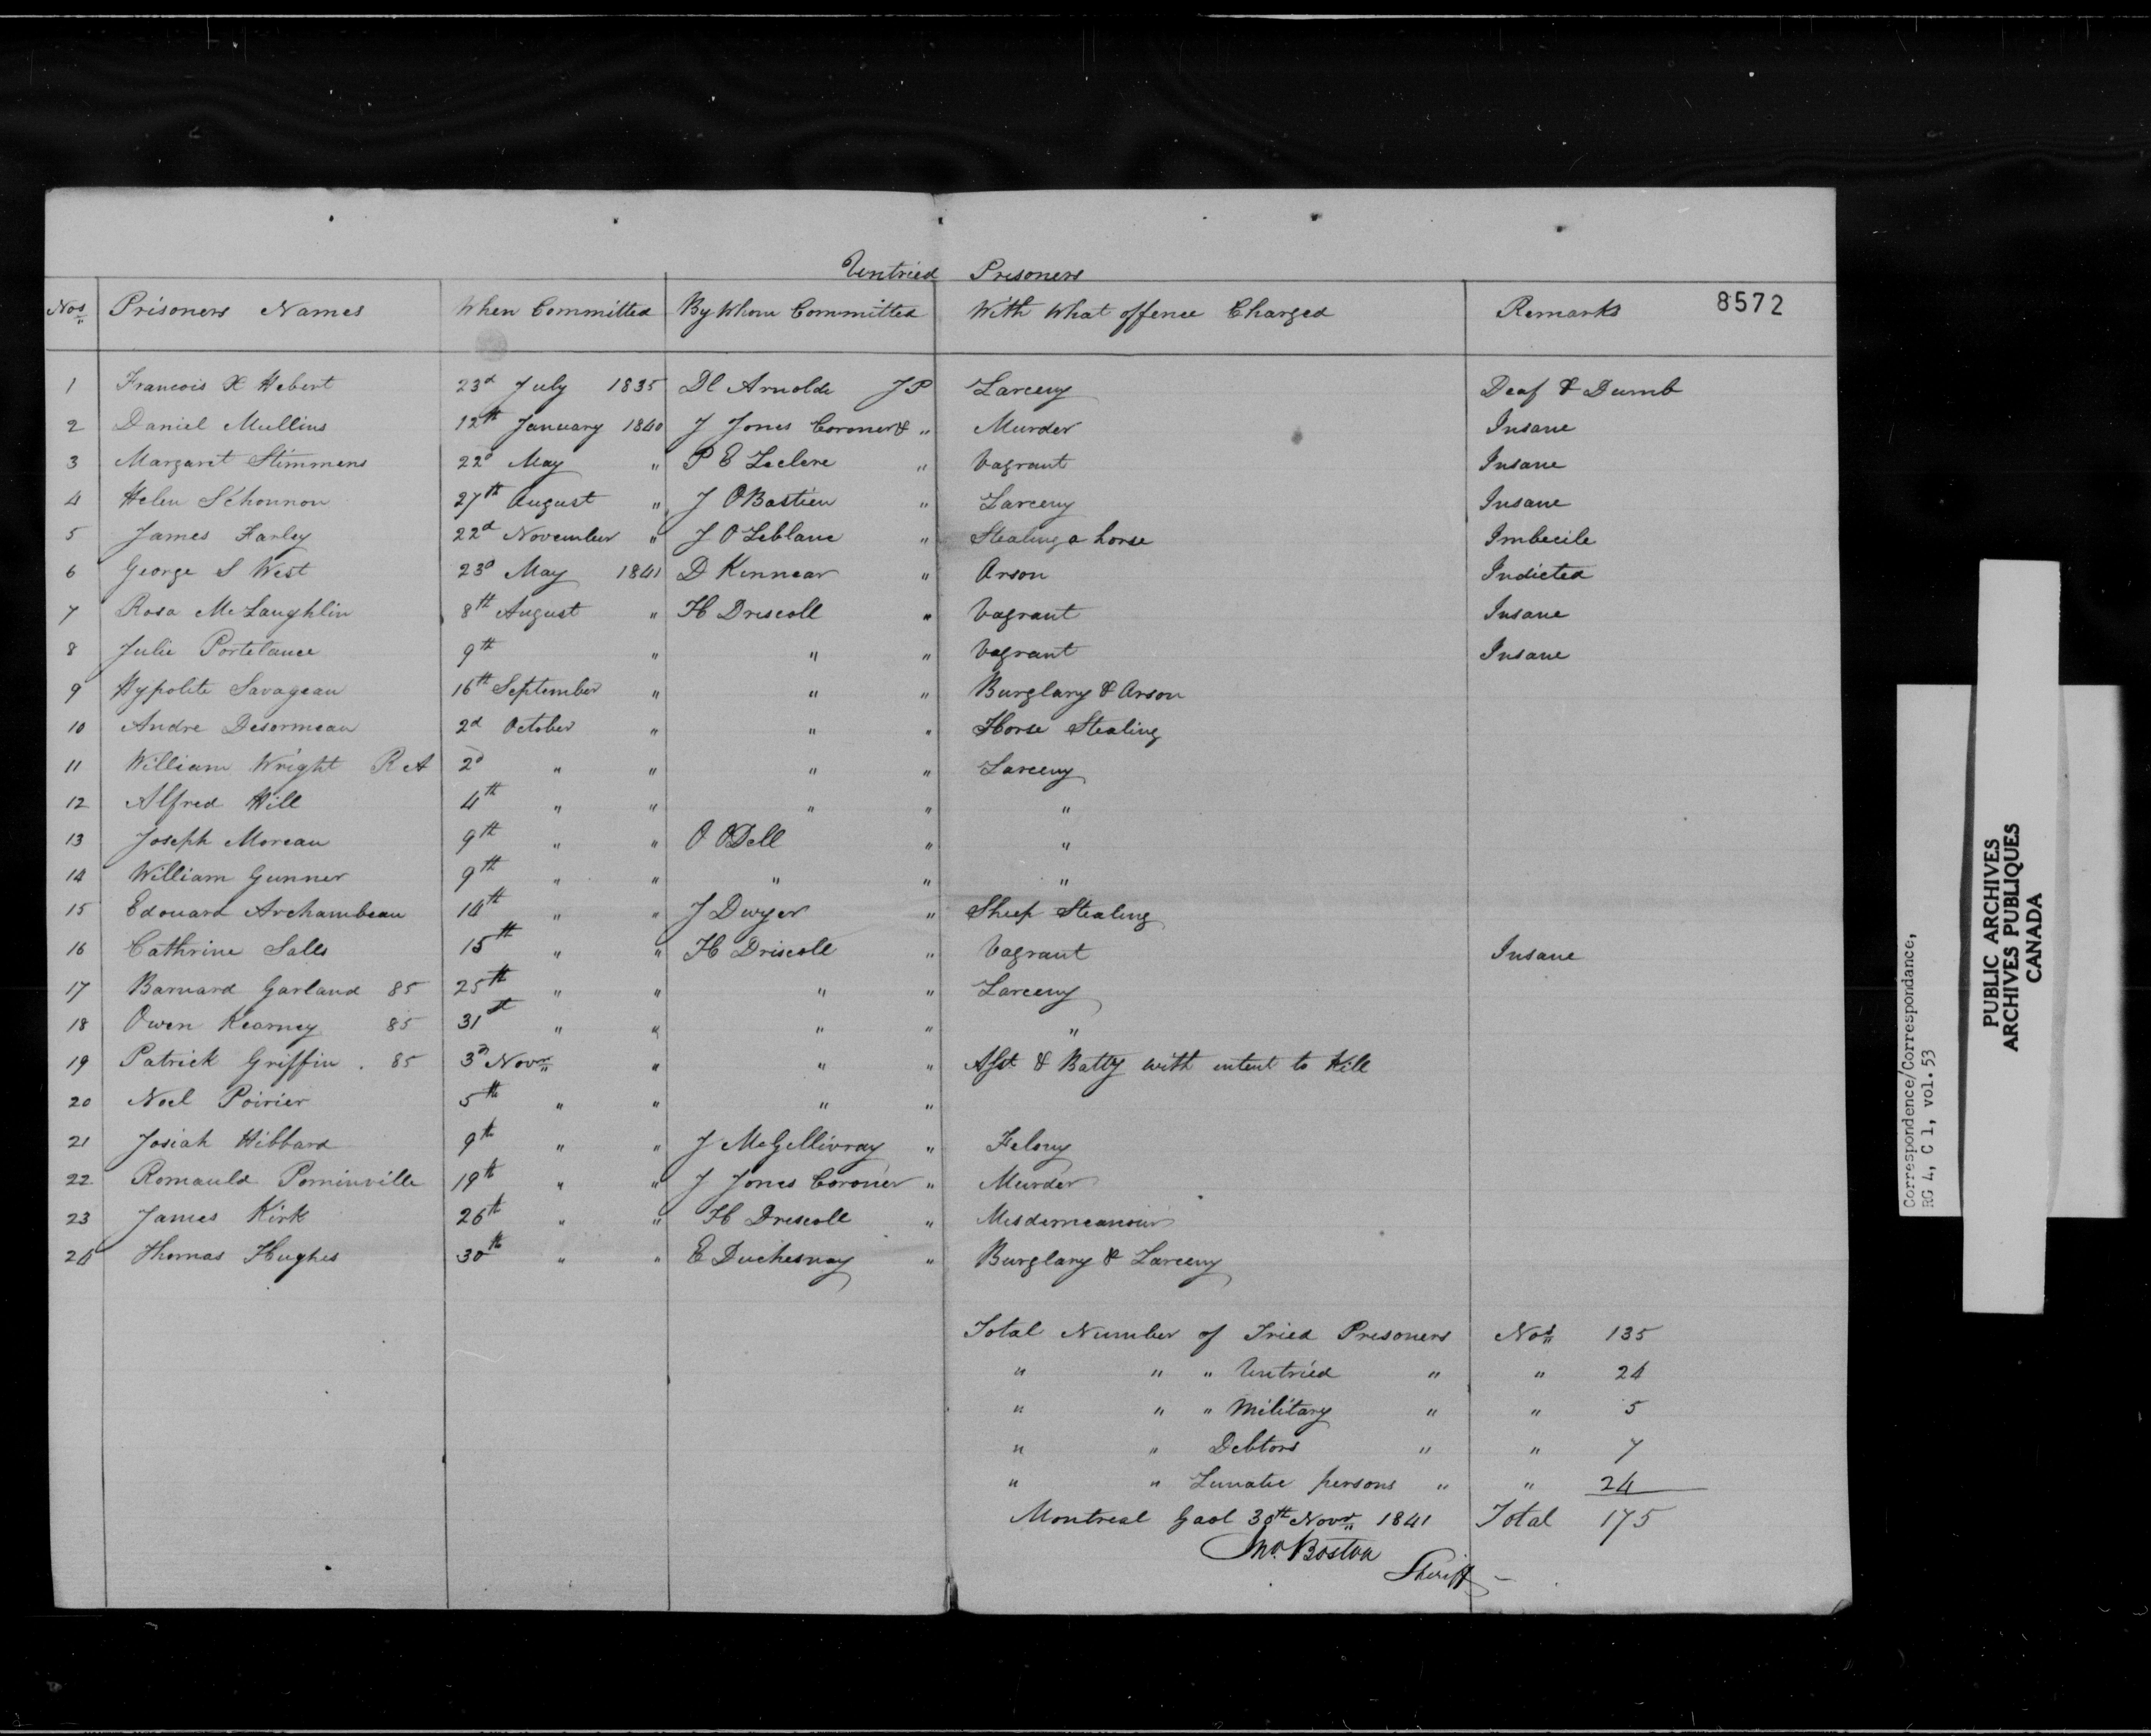 Untried Prisoners
Nos Prisoners Names When Committed By Whom Committed With What offence Charged Remarks 8572
1 Francois X Hebert 23d July 1835 Dl Arnoldi JP Larceny Deaf & Dumb
2 Daniel Mullins 12th January 1840 J Jones Coroner & " Murder Insane
3 Margaret Stimmens 22d May " P E Leclere " Vagrant Insane
4 Helen Schonnon 27th August " J O Bastien " Larceny Insane
5 James Farley 22d November " J O Leblanc " Stealing a horse Imbecile
6 George S West 23d May 1841 D Kinnear " Arson Indicted
7 Rosa McLaughlin 8th August " H Driscoll " Vagrant Insane
8 Julie Portelance 9th " " " Vagrant Insane
9 Hypolite Savageau 16th September " " " Burglary & Arson
10 Andre Desormeau 2d October " " " Horse Stealing
11 William Wright R A 2d " " " " Larceny
12 Alfred Hill 4th " " " " "
13 Joseph Moreau 9th " " O ODell " "
14 William Gunner 9th " " " " "
15 Edouard Archambeau 14th " " J Dwyer " Sheep Stealing
16 Cathrine Salls 15th " " H Driscoll " Vagrant Insane
17 Barnard Garland 85 25th " " " " Larceny
18 Owen Kearney 85 31st " " " " "
19 Patrick Griffin . 85 3d Novr " " " Asst & Batty with intent to Kill
20 Noel Poirier 5th " " " "
21 Josiah Hibbard 9th " " J McGillivray " Felony
22 Romauld Pominville 19th " " J Jones Coroner " Murder
23 James Kirk 26th " " H Driscoll " Misdemeanour
24 Thomas Hughes 30th " " E Duchesnay " Burglary & Larceny
Total Number of Tried Prisoners Nos 135
" " " Untried " " 24
" " " Military " " 5
" " Debtors " " 7
" " Lunatic persons " " 24
Montreal Gaol 30th Novr 1841 Total 175
Jno. Boston
Sheriff
Correspondence/Correspondance,
RG 4, C 1, vol. 53
PUBLIC ARCHIVES
ARCHIVES PUBLIQUES
CANADA